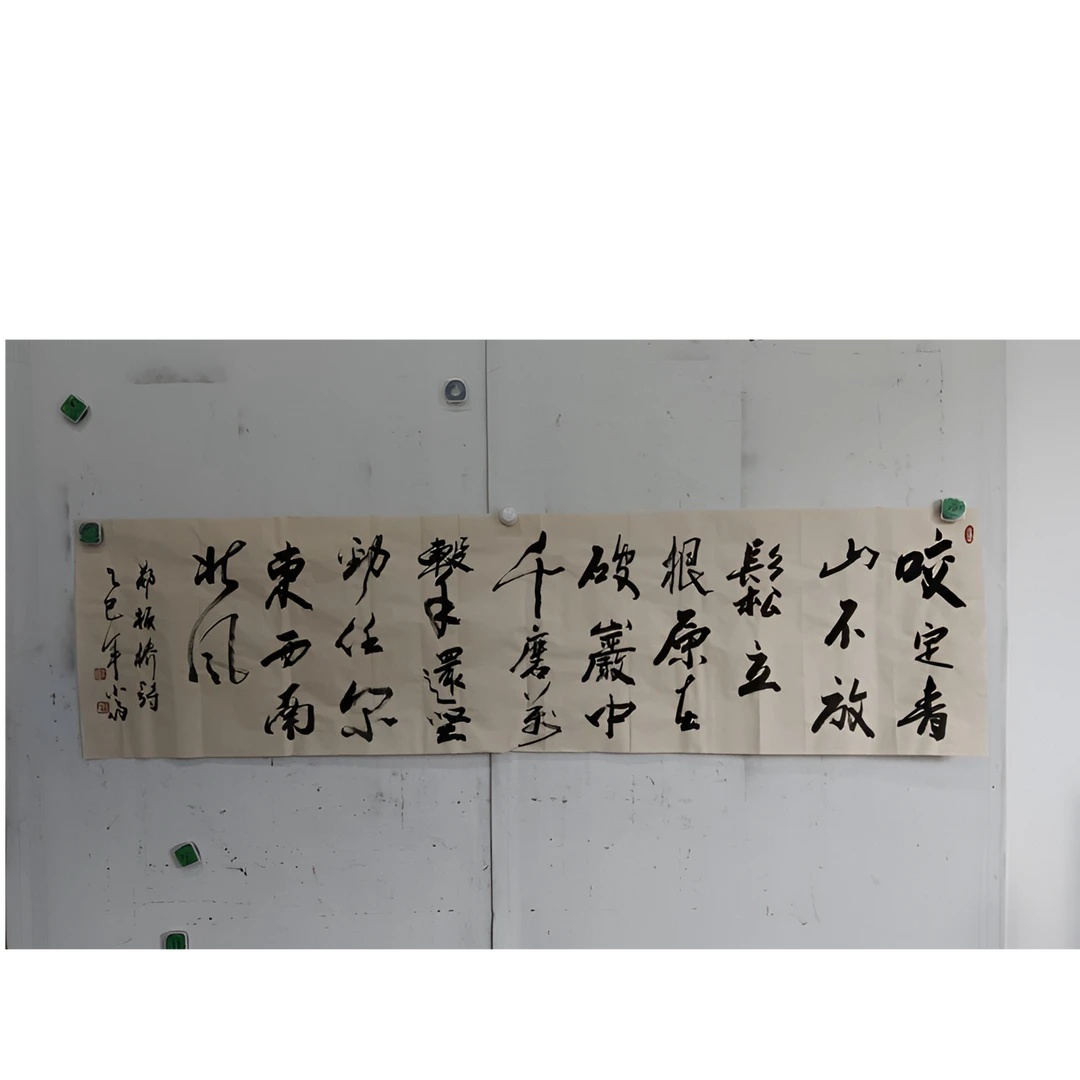 咬定青
山不放
鬆立
根原在
破巖中
千磨萬
擊還堅
勁任尔
東西南
北风
郑板橋詩
乙巳年小翁